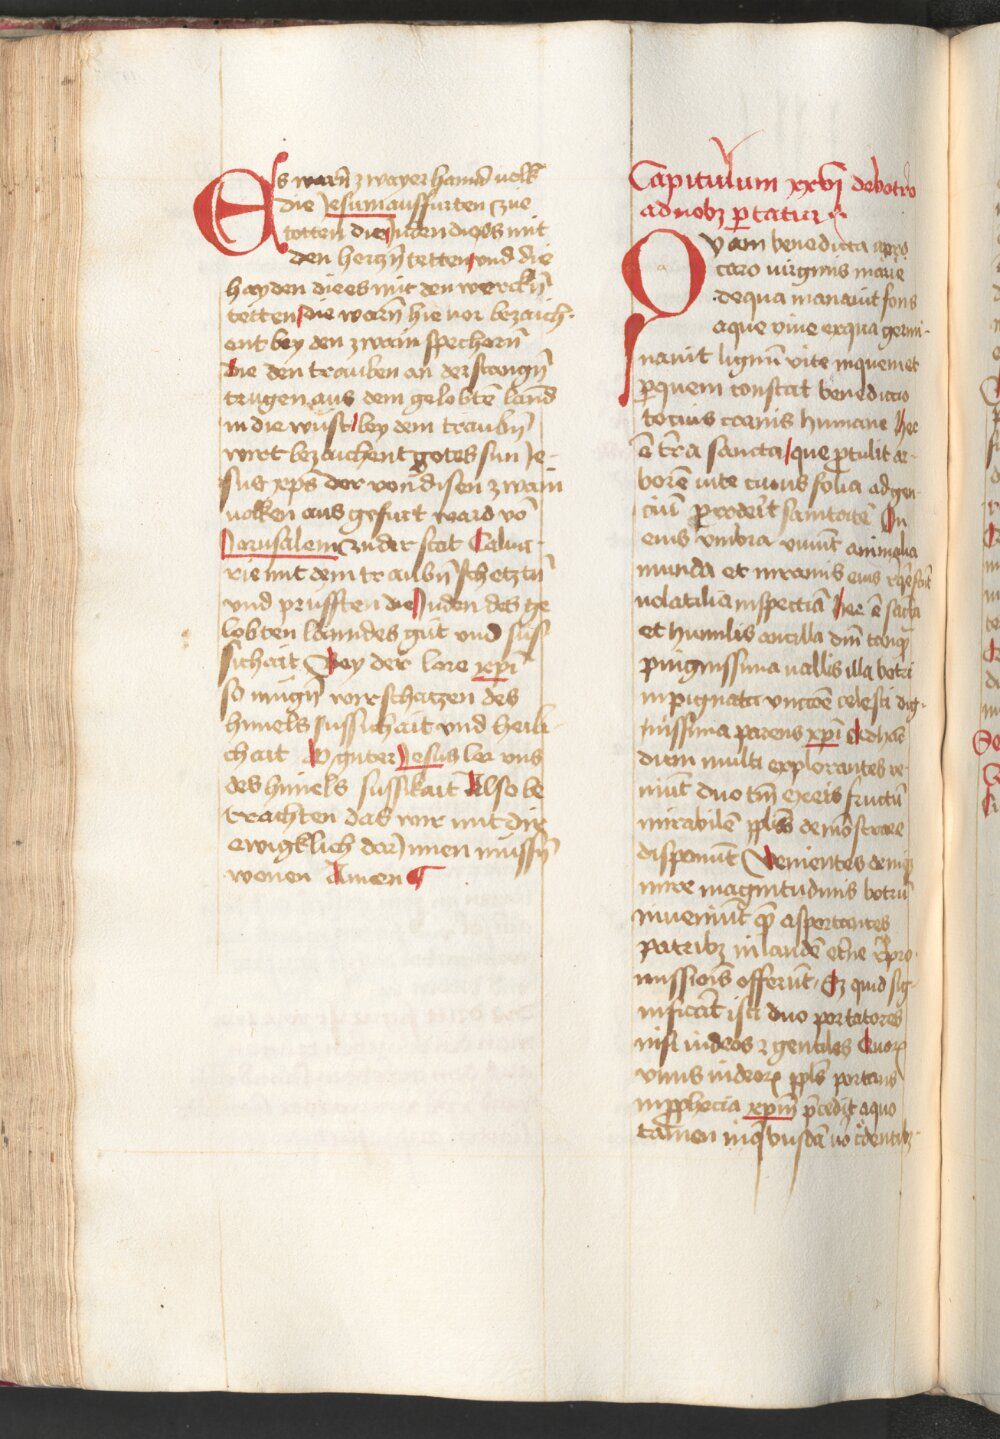 Es warn̄ zwayer hannd uolk
die Jesum aussfurten zue
totten die Juden die es mit
den herczn̄ tetten und die
hayden die es mit den werckn̄
tetten die warn̄ hie uor bezaich-
ent bey den zwain spechern̄
Die den trauben an der stangn̄
trugen aus dem gelobtē land
in die wüst bey dem traubn̄
wirt bezaichent gotes sun Je-
sus xp̄s der von disen zwain
uolken aus gefurt ward vō
Jerusalem zu der stat Calua-
rie mit dem traubn̄ schetztn̄
und prüfften die Juden des ge
lobten lanndes güt und süs
sichait Bey der lore xp̄i
so mügn̄ wir schatzen des
himels süssichait und heili
chait O guter Jesus ler uns
des himels süssikait Also be
trachten das wir mit dir
ewigklich dar Jnnen müssn̄
wonen Amen
Capitulum xxvj de botro
ad nob₃ ꝑtatur
Quam benedicta a pro
caro virginis marie
de qua manauit fons
aque viue ex qua germi-
nauit lignū vite in quem et
ꝑ quem constat benedictio
tocius carnis humane Hec
ē t̄ra sancta que ꝑtulit ar-
borē uite cuius folia ad gen
ciū ꝓcedēt sanitatē In
eius vmbra viuūt animalia
munda et in ramis eius
uolatilia Hec ē sc̄ta
et humilis ancilla dn̄i tanq̄
pinguissima uallis illa botri
inpignata vnctōe celesti dig-
nissima parens xp̄i Ad hanc
diem multi explorantes re-
niūt duo tn̄ ex eis fructū
mirabilē pp̄lis demōstrare
disponūt Venientes deniq₃
mire magnitudinis botrū
inueniūt q̄ asportantes
patrib₃ in laudē et̄ne repro-
missionis offerūt S₃ quid sig-
nificāt isti duo portatores
nisi iudeos ⁊ gentiles Quorꝝ
vnus iudeorꝝ pp̄ls portans
in ꝓphecia xp̄m p̄cedit a quo
tamen in quibusdā uō c̄dentib₃